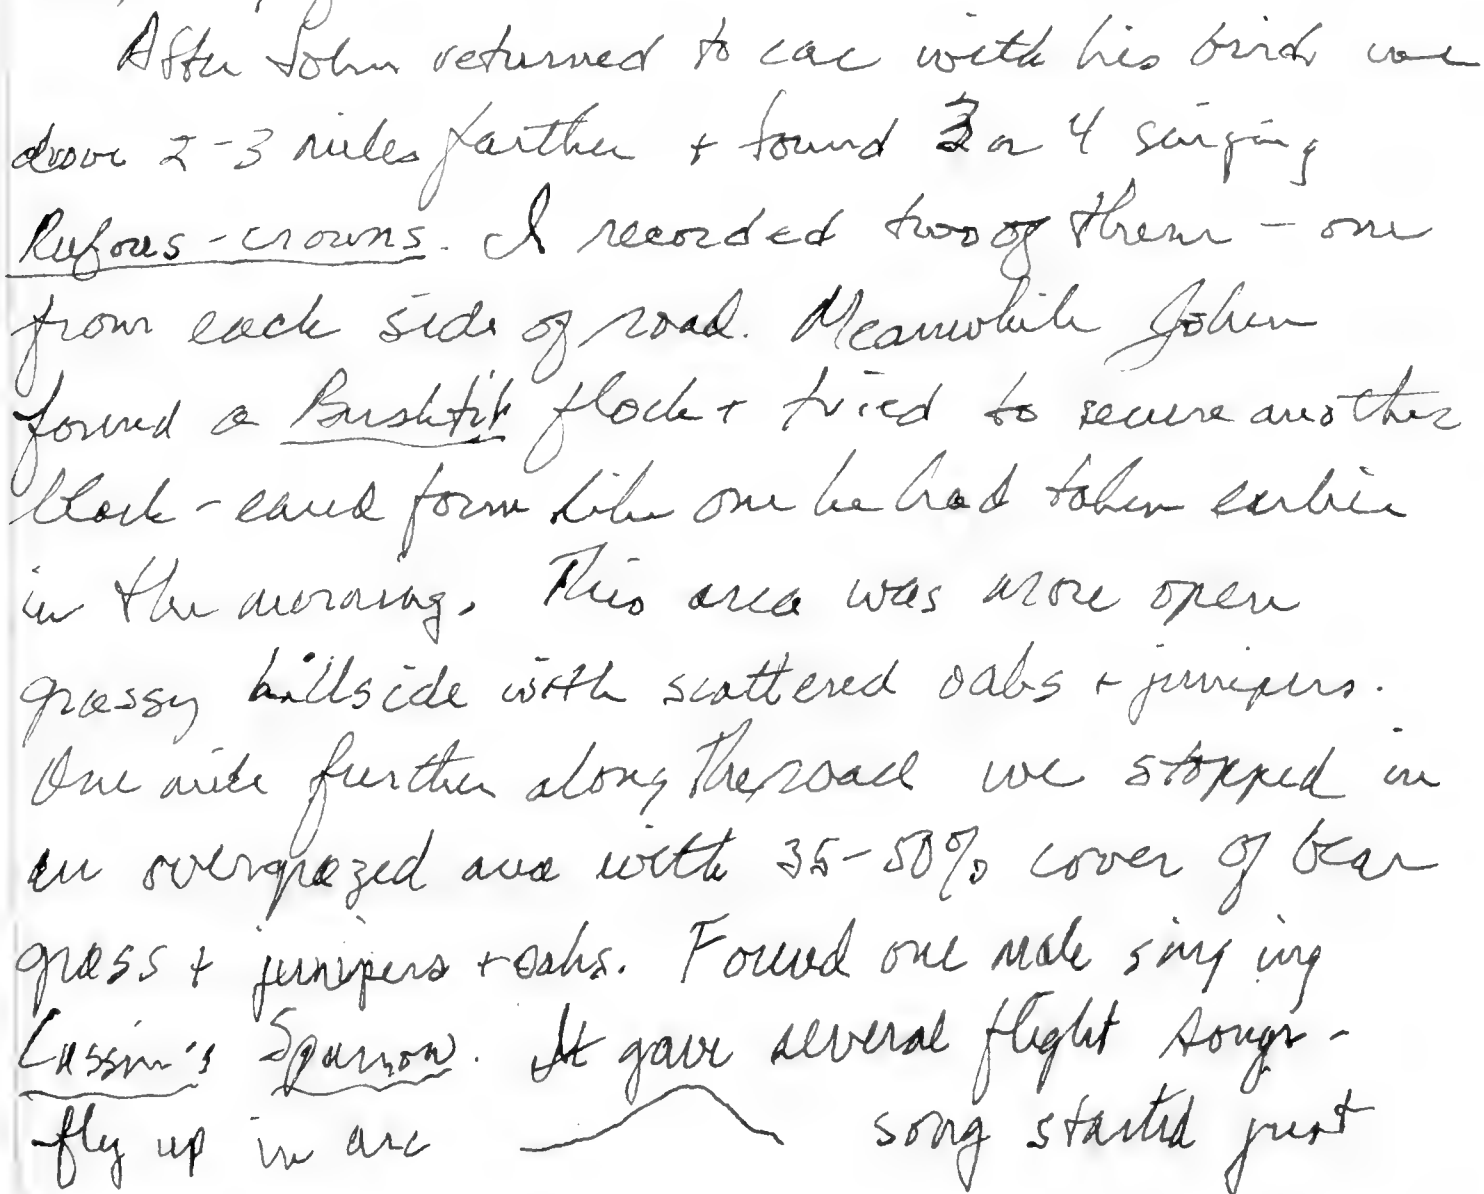 After John returned to car with his bird we
drove 2-3 miles farther + found 3 or 4 singing
Rufous-crowns. I recorded two of them - one
from each side of road. Meanwhile John
found a Bushtit flock + tried to secure another
black-eared form like one he had taken earlier
in the morning. This area was more open
grassy hillside with scattered oaks + junipers.
One mile further along the road we stopped in
an overgrazed area with 35-50% cover of bear
grass + junipers + oaks. Found one male singing
Cassin's Sparrow. It gave several flight songs -
fly up in arc song started just